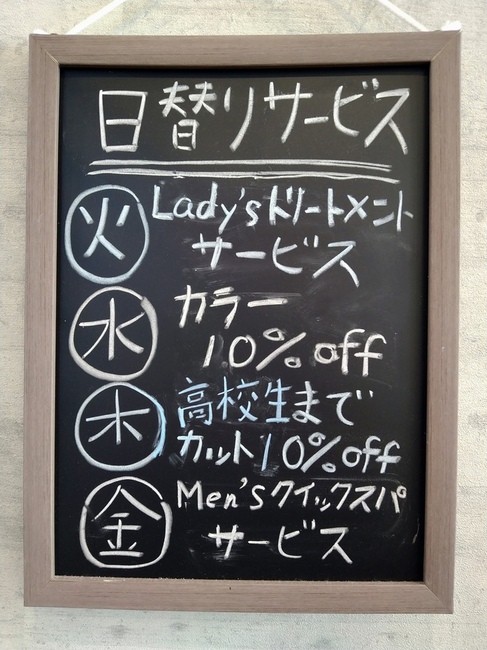 日替りサービス
火 Lady'sトリートメント
サービス
水 カラー
10% off
木 高校生まで
カット10% off
金 Men'sクイックスパ
サービス